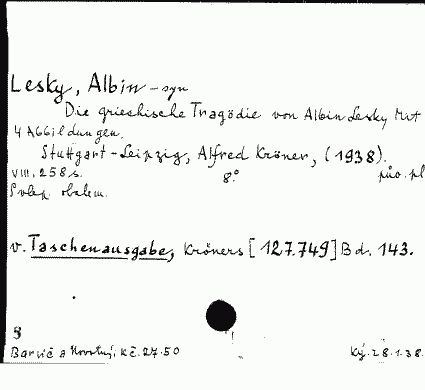 Lesky, Albin - syn
Die grieshische Tragödie von Albin Lesky Mit
4 Abbildungen.
Stuttgart-Leipzig, Alfred Kröner, (1938).
VIII, 258 s. 8° pův. pl
S vlep. obalem.
v. Taschenausgabe, Kröners [127.749] Bd. 143.
Barvič a Novotný, Kč. 27.50 Ký. 28.1.38.